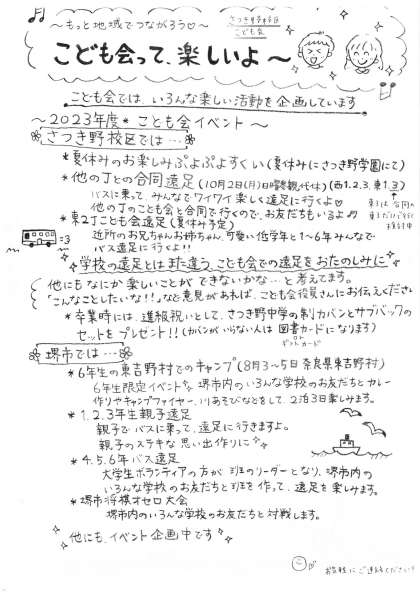 ～もっと地域でつながろう♡～
さつき野校区
こども会
こども会って、楽しいよ～
こども会では、いろんな楽しい活動を企画しています
～2023年度＊こども会イベント～
さつき野校区では…
＊夏休みのお楽しみぷよぷよすくい(夏休みにさつき野学園にて)
＊他の丁との合同遠足(10月2日(月)日曜参観代休)(西1.2.3.東1.3)
バスに乗って、みんなでワイワイ楽しく遠足に行くよ♡
他の丁のこども会と合同で行くので、お友だちもいるよ♪
＊東2丁こども会遠足(夏休み予定)
近所のお兄ちゃんお姉ちゃん、可愛い低学年と1～6年みんなで
バス遠足に行くよ!!
学校の遠足とはまた違う、こども会での遠足をおたのしみに
他にもなにか楽しいことができないかな…と考えてます。
「こんなことしたいな!!」など意見があれば、こども会役員さんにお伝えください
＊卒業時には、進級祝いとして、さつき野中学の制カバンとサブバックの
セットをプレゼント!!(カバンがいらない人は図書カードになります)
堺市では…
＊6年生の東吉野村でのキャンプ(8月3～5日奈良県東吉野村)
6年生限定イベント 堺市内のいろんな学校のお友だちとカレー
作りやキャンプファイヤー、川あそびなどをして、2泊3日楽しみます。
＊1.2.3年生親子遠足
親子でバスに乗って、遠足に行きますよ。
親子のステキな思い出作りに
＊4.5.6年バス遠足
大学生ボランティアの方が班のリーダーとなり、堺市内の
いろんな学校のお友だちと班を作って、遠足を楽しみます。
＊堺市将棋オセロ大会
堺市内のいろんな学校のお友だちと対戦します。
他にも、イベント企画中です
お気軽にご連絡ください!